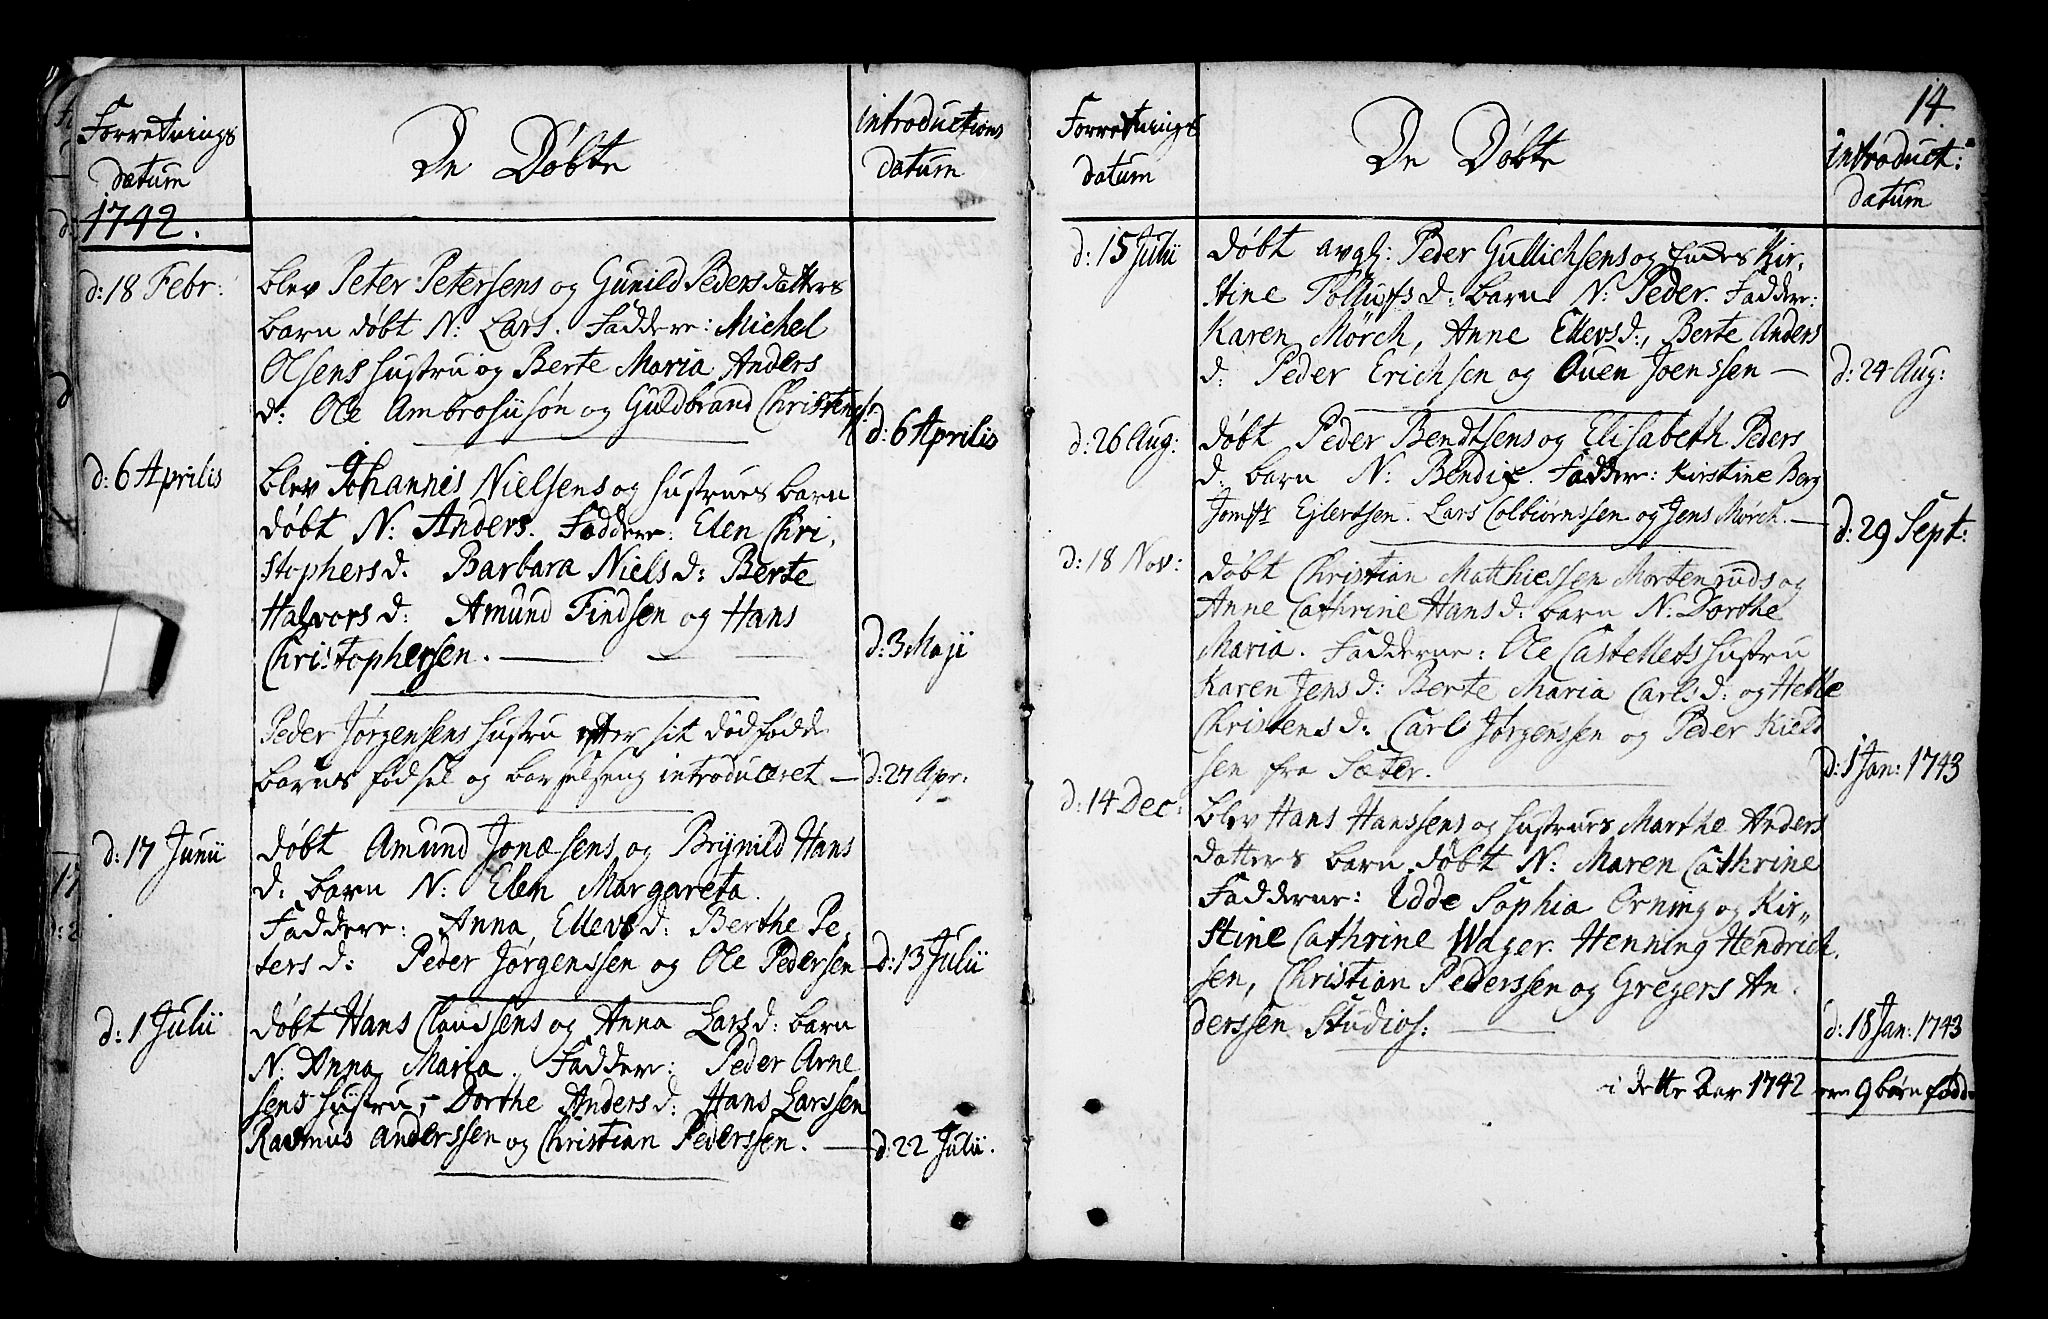 Forretnings
datum
1742.
De Døbte
introductions
datum
d: 18 Febr:
blev Peter Petersens og Gunild Pedersdatters
barn døbt N: Lars. Faddere: Michel
Olsens hustru og Berte Maria Anders
d: Ole Ambrosiisøn og Guldbrand Christens:
d: 6 Aprilis
d: 6 Aprilis
blev Johannis Nielsens og hustrues barn
døbt N: Anders. Faddere: Elen Chri,
stophersd. Barbara Nielsd: Berte
Halvorsd: Amund Findsen og Hans
Christophersen.
d: 3 Maji
Peder Jørgensens hustru efter sit dødfødde
barns fødsel og barselseng introduceret
d: 27 Apr:
d: 17 Junii
døbt Amund Jonæsens og Brynild Hans
d: barn N: Elen Margareta.
Faddere: Anna Ellevsd: Berthe Pe,
tersd: Peder Jørgenssen og Ole Pedersen
d: 13 Julii
d: 1 Julii
døbt Hans Claussens og Anna Larsd: barn
N: Anna Maria. Faddere: Peder Arne
sens hustru, Dorthe Andersd: Hans Larssen
Rasmus Anderssen og Christian Pederssen.
d: 22 Julii.
14
Forretnings
datum
De Døbte
introduct:
datum
d: 15 Julii
døbt avgl: Peder Gullichsens og Enkes Kir,
stine Tollufsd: barn N: Peder. Faddere:
Karen Mørch, Anne Ellevsd:, Berte Anders
d: Peder Erichsen og Ouen Joenssen
d: 24 Aug:
d: 26 Aug:
døbt Peder Bendtsens og Elisabeth Peders
d: barn N: Bendix. Faddere: Kirstine Berg
Jomfr Ejlertsen. Lars Colbiørnssen og Jens Mørch.
d: 29 Sept:
d: 18 Nov:
døbt Christian Matthiessen Mortenruds og
Anne Cathrine Hansd: barn N: Dorthe
Maria. Fadderne: Ole Castellets hustru
Karen Jensd: Berte Maria Carlsd: og Helle
Christensd: Carl Jørgenssen og Peder Kield
sen fra Sæter.
d: 1 Jan: 1743
d: 14 Dec:
blev Hans Hanssens og hustrues Marthe Anders
datters barn døbt N: Maren Cathrine
Fadderne: Edde Sophia Orning og Kir,,
stine Cathrine Wager. Henning Hendrich,
sen, Christian Pederssen og Gregers An,
derssen Studios:
d: 18 Jan: 1743
i dette Aar 1742 ere 9 børn fødde